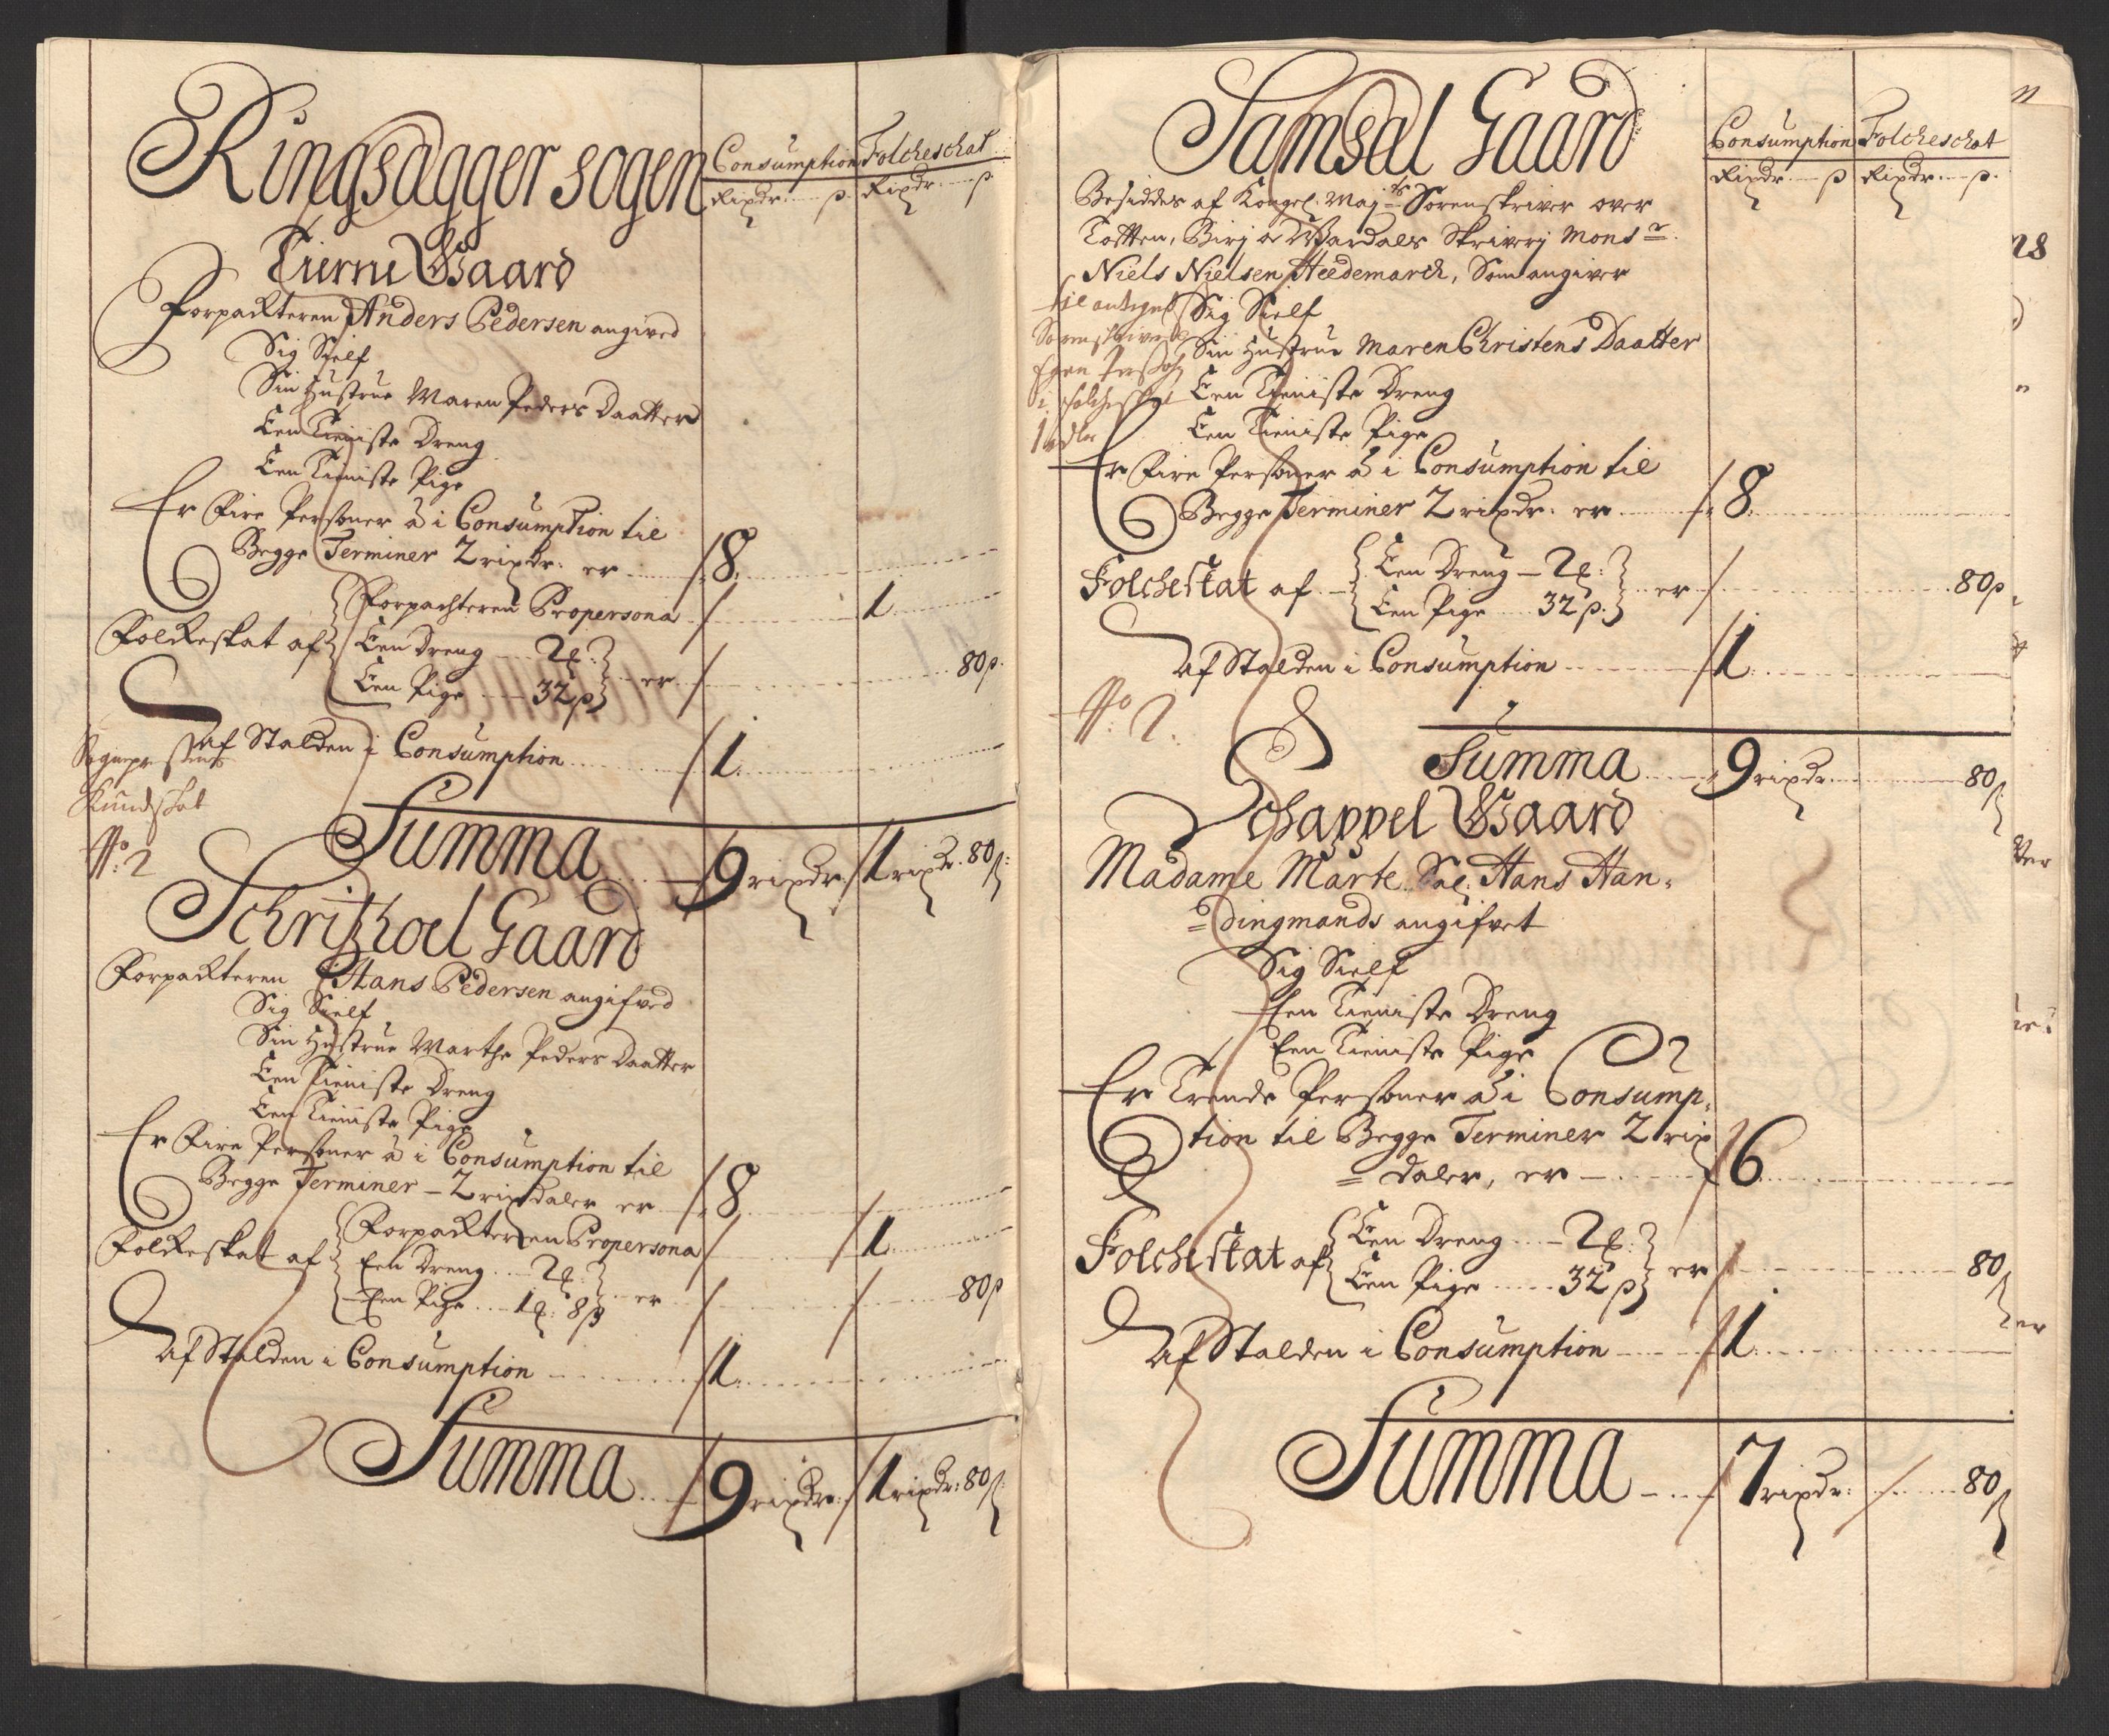 Ringsagger sogen
Consumption Folcheschat
Rixdr. ß. Rixdr. ß
Tierne Gaard
Forpackteren Anders Pedersen angived
Sig Sielf
Sin Hustrue Maren Peders Daatter
Een Tieniste Dreng
Een Tieniste Pige
Er Fire Personer à i Consumption til
Begge Terminer 2 rixdr. er 8
Folkeskat af Forpachteren Propersona 1
Een Dreng 2 ℔:
Een Pige 32 ß er 80 ß.
Af Stalden i Consumption 1
Kundskab
No. 2
Summa 9 rixdr. 1 rixdr. 80 ß:
Schritzhoel Gaard
Forpackteren Hans Pedersen angifved
Sig Sielf
Sin Hustrue Marthe Peders Daatter
Een Tieniste Dreng
Een Tieniste Pige
Er Fire Personer à i Consumption til
Begge Terminer 2 rixdaler er 8
Folkeskat af Forpackteren Propersona 1
Een Dreng 2 ℔:
Een Pige 1 ℔: 8 ß er 80 ß
Af Stalden i Consumption 1
Summa 9 rixdr: 1 rixdr: 80 ß
Samsal Gaard
Consumption Folcheschat
Rixdr. ß Rixdr. ß.
Besiddes af Kongel: Maj:ts Sorenskriver over
Totten, Birj oc Wardals Skriverj Monsr.
Niels Nielsen Heedemarck, Som angiver
Sig Sielf
Sin Hustrue Maren Christens Daatter
Een Tieniste Dreng
Een Tieniste Pige
Sorenskriverens
Egen Persohn
i folcheskat
1 rdlr
Er Fire Personer à i Consumption til
Begge Terminer 2 rixdr. er 8
Folcheskat af Een Dreng 2 ℔:
Een Pige 32 ß. er 80 ß
Af Stalden i Consumption 1
No. 2.
Summa 9 rixdr. 80 ß
Schappel Gaard
Madame Marte Sal: Hans Han=
=dingmands angifvet
Sig Sielf
Een Tieniste Dreng
Een Tieniste Pige
Er Trende Personer à i Consump=
tion til Begge Terminer 2 rix
=daler, er 6
Folcheskat af Een Dreng 2 ℔:
Een Pige 32 ß er 80 ß
Af Stalden i Consumption 1
Summa 7 rixdr: 80 ß